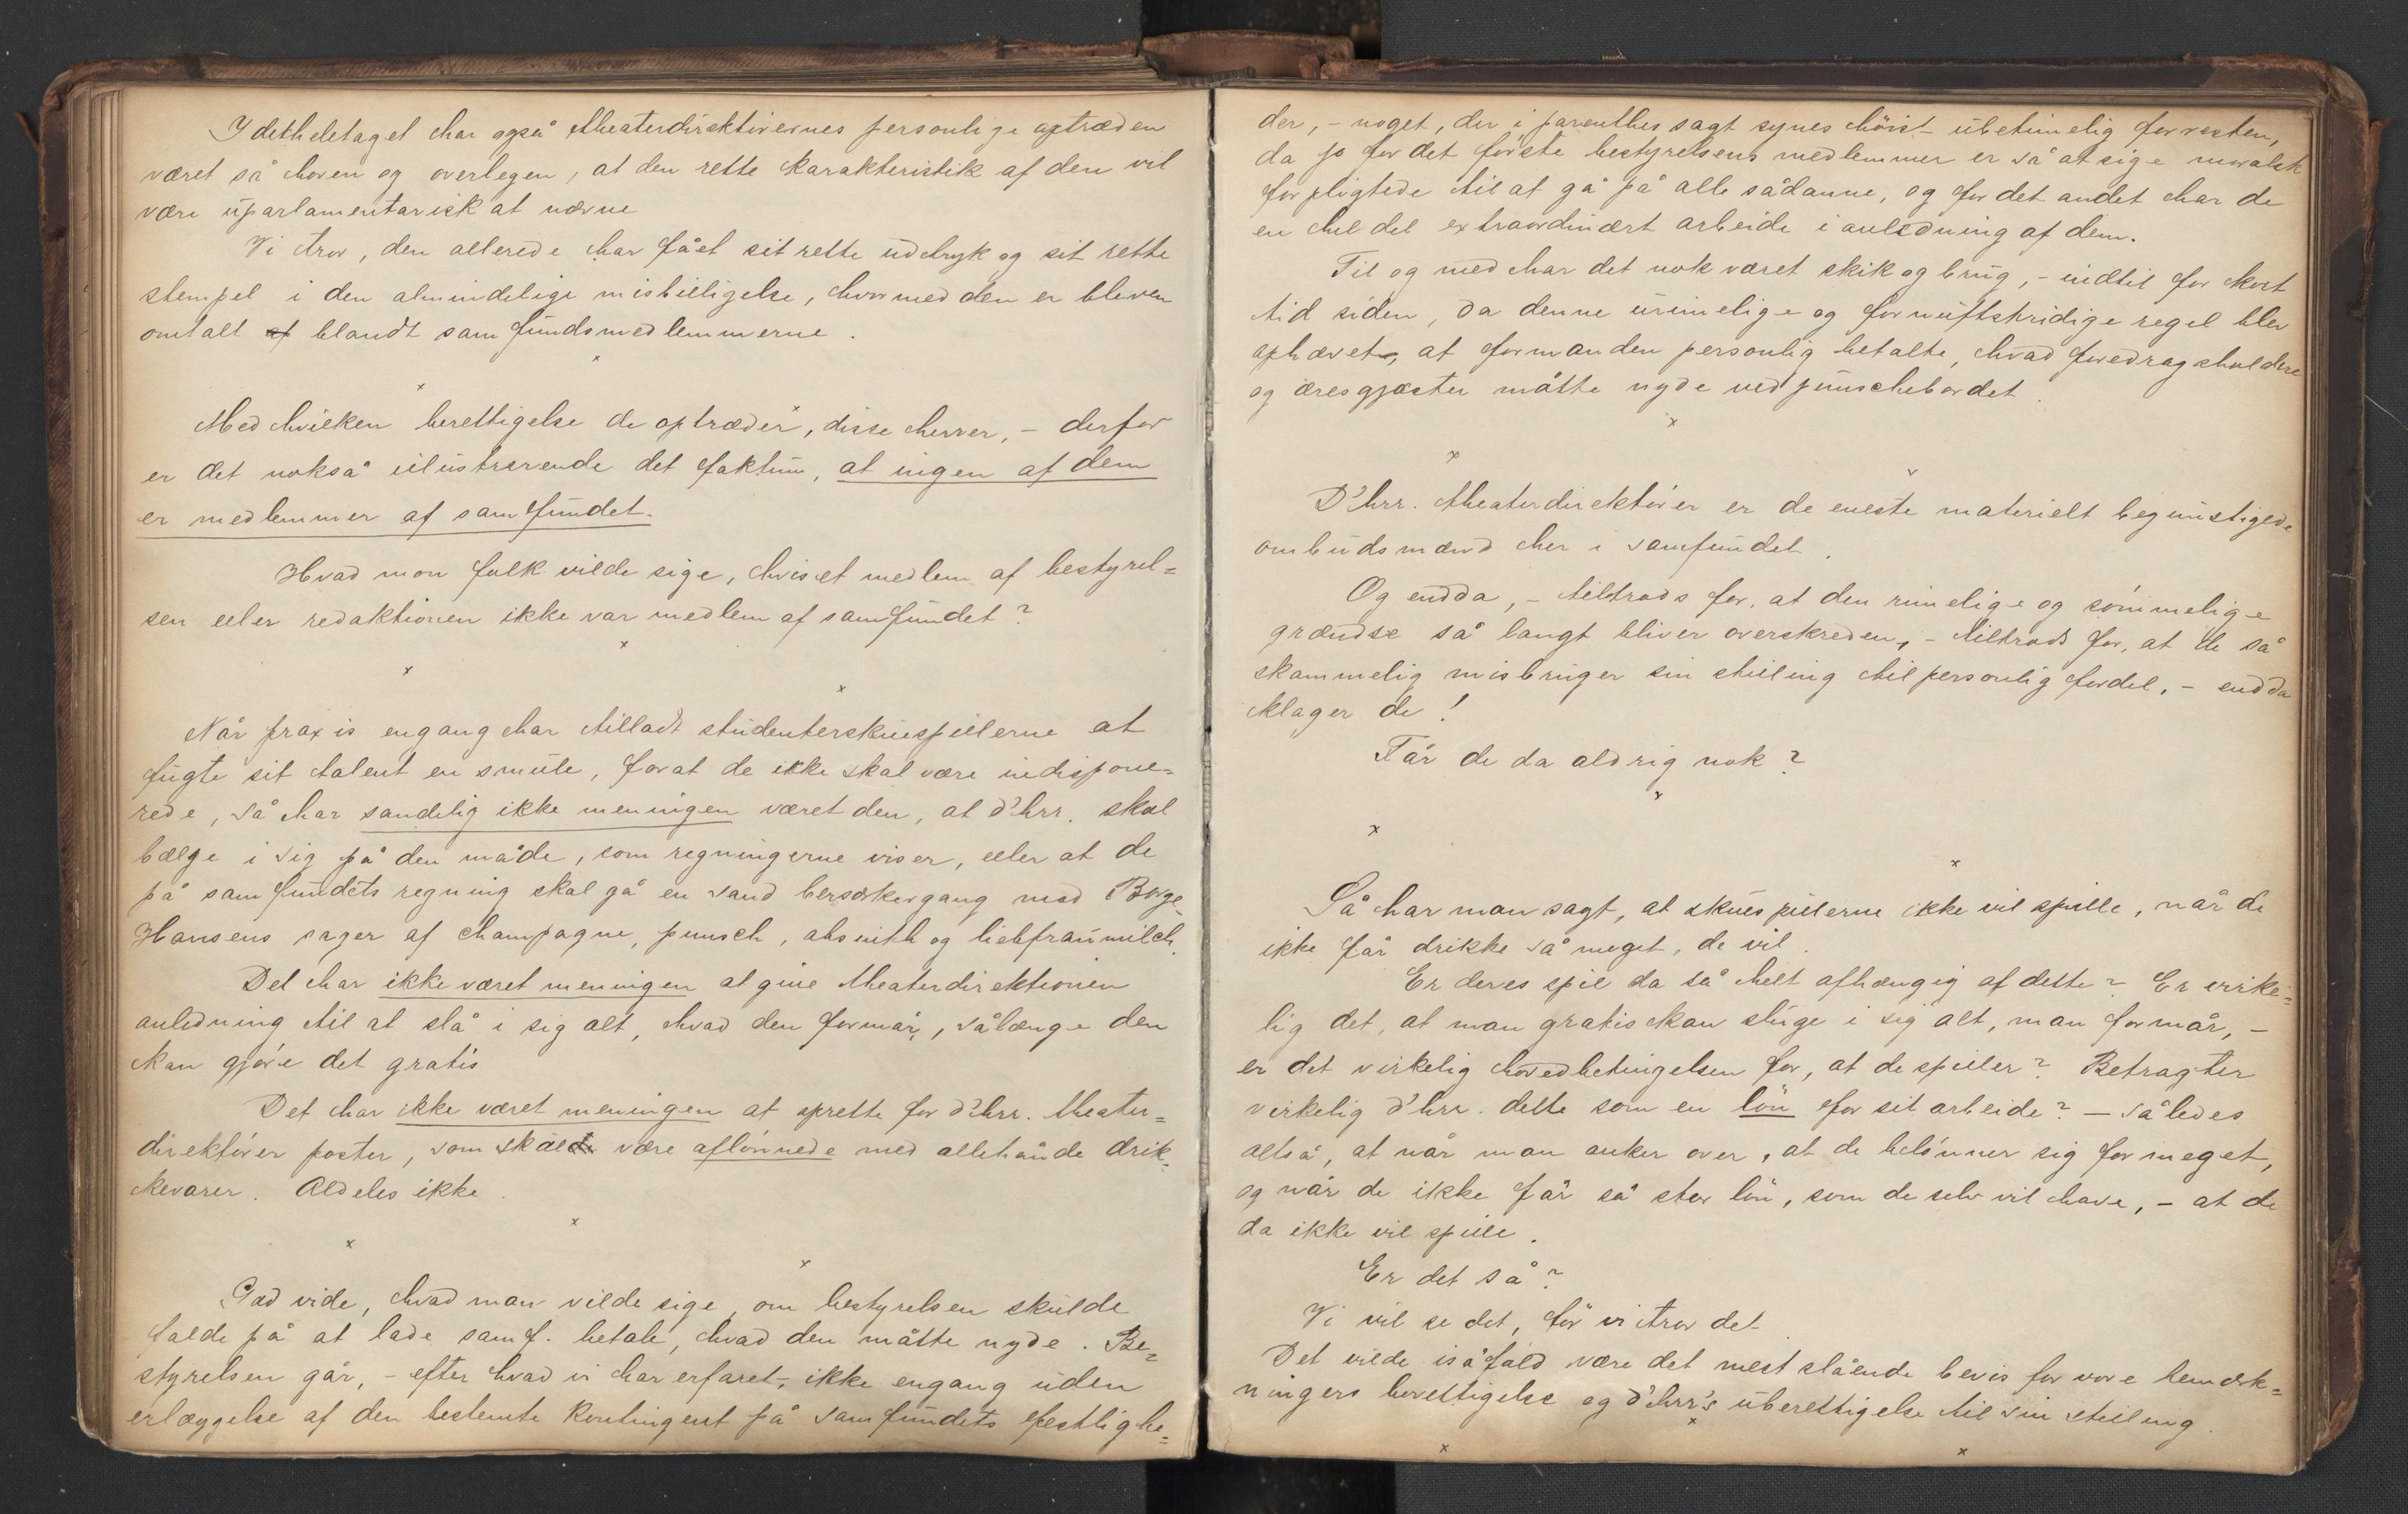 I detheletaget har også theaterdirektörernes personlige optræden
været så hoven og overlegen, at den rette karakteristik af den vil
være uparlamentarisk at nævne
Vi tror, den allerede har fået sit rette udtryk og sit rette
stempel i den almindelige misbilligelse, hvormed den er bleven
omtalt af blandt samfundsmedlemmerne.
x
x
x
Med hvilken berettigelse de optræder, disse herrer, – derfor
er det nokså illustrerende det faktum, at ingen af dem
er medlemmer af samfundet.
Hvad mon folk vilde sige, hvis et medlem af bestyrel=
sen eller redaktionen ikke var medlem af samfundet?
x
x
x
Når praxis engang har tilladt studenterskuespillerne at
fugte sit talent en smule, forat de ikke skal være indispone=
rede, så har sandelig ikke meningen været den, at d'hrr. skal
bælge i sig på den måde, som regningerne viser, eller at de
på samfundets regning skal gå en sand bersærkergang mod Borge
Hansens sager af champagne, punsch, absinth og liebfraumilch.
Det har ikke været meningen at give theaterdirektionen
anledning til at slå i sig alt, hvad den formår, sålænge den
kan gjöre det gratis
Det har ikke været meningen at oprette for d'hrr. theater=
direktörer poster, som skal være aflönnede med allehånde drik=
kevarer. Aldeles ikke.
x
x
x
Gad vide, hvad man vilde sige, om bestyrelsen skulde
falde på at lade samf. betale, hvad den måtte nyde. Be=
styrelsen går, – efter hvad vi har erfaret, ikke engang uden
erlæggelse af den bestemte kontingent på samfundets festlighe=
der, – noget, der i parenthes sagt synes höist ubetimelig forresten,
da jo for det förste bestyrelsens medlemmer er så at sige moralsk
forpligtede til at gå på alle sådanne, og for det andet har de
en hel del extraordinært arbeide i anledning af dem.
Til og med har det nok været skik og brug, – indtil for kort
tid siden, da denne urimelige og fornuftstridige regel blev
ophævet, at formanden personlig betalte, hvad foredragsholdere
og æresgjæster måtte nyde ved punschebordet.
x
x
x
D'hrr. theaterdirektörer er de eneste materielt begunstigede
ombudsmænd her i samfundet.
Og endda, – tiltrods for, at den rimelige og sömmelige
grændse så langt bliver overskreden, – tiltrods for, at de så
skammelig misbruger sin stilling til personlig fordel, – endda
klager de!
Får de da aldrig nok?
x
x
x
Så har man sagt, at skuespillerne ikke vil spille, når de
ikke får drikke så meget, de vil.
Er deres spil da så helt afhængig af dette? Er virke=
lig det, at man gratis kan sluge i sig alt, man formår, –
er det virkelig hovedbetingelsen for, at de spiller? Betragter
virkelig d'hrr. dette som en lön for sit arbeide? – således
altså, at når man anker over, at de belönner sig for meget,
og når de ikke får så stor lön, som de selv vil have, – at de
da ikke vil spille.
Er det så?
Vi vil se det, för vi tror det
Det vilde isåfald være det mest slående bevis for vore bemærk=
ningers berettigelse og d'hrr's uberettigelse til sin stilling.
x
x
x